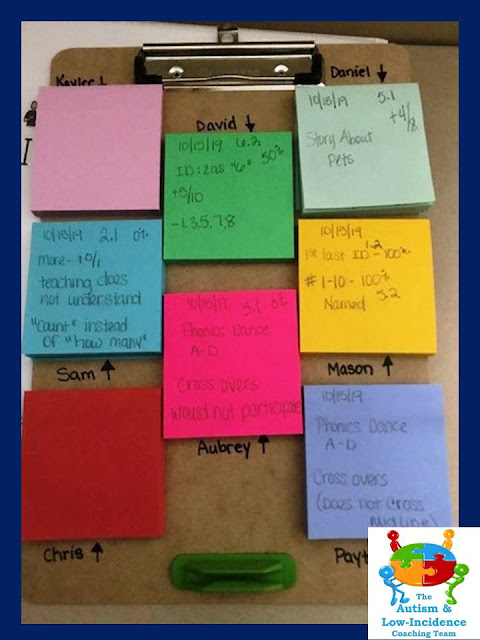 Kaylee ↓
10/15/19 5.1
+4/8
Story About
Pets
Daniel ↓
David ↓
10/15/19 6.2
ID: 2 as "6" 50%
+5/10
-1,3,5,7,8
10/15/19 2.1 0%
more- +0/1
teaching does
not understand
"count" instead
of "how many"
Sam ↑
10/15/19
1.2
1st last ID - 100%
# 1-10 - 100%
Named 5.2
Mason ↑
10/15/19 5.1 0%
Phonics Dance
A-D
Cross overs
would not participate
Aubrey ↑
Chris ↑
10/15/19
Phonics Dance
A-D
Cross overs
(Does not Cross
Midline)
Payt
The
Autism &
Low-Incidence
Coaching Team